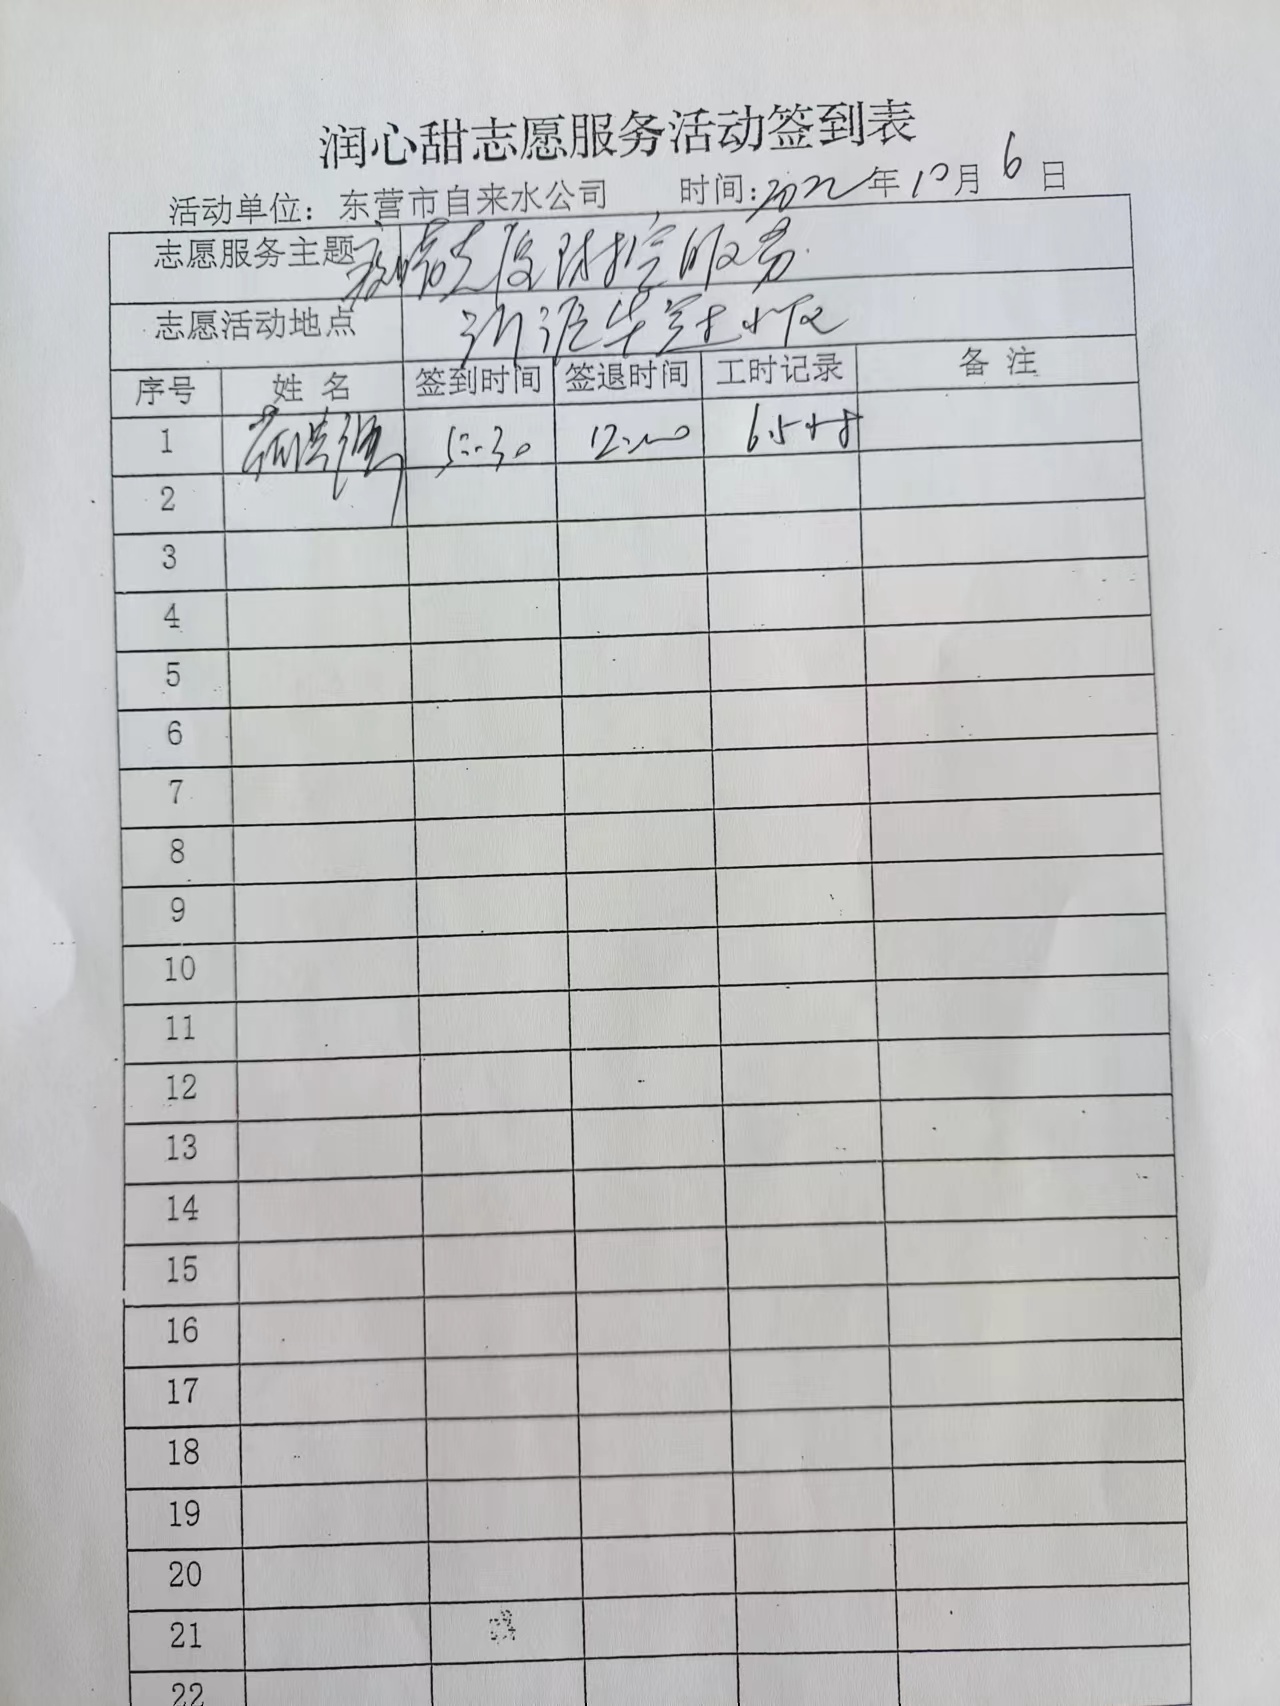 润心甜志愿服务活动签到表
活动单位：东营市自来水公司 时间:2022年10月6日
志愿服务主题 疫情防控服务
志愿活动地点 小区
序号 姓名 签到时间 签退时间 工时记录 备注
1 5:30 12:00 6.5小时
2
3
4
5
6
7
8
9
10
11
12
13
14
15
16
17
18
19
20
21
22